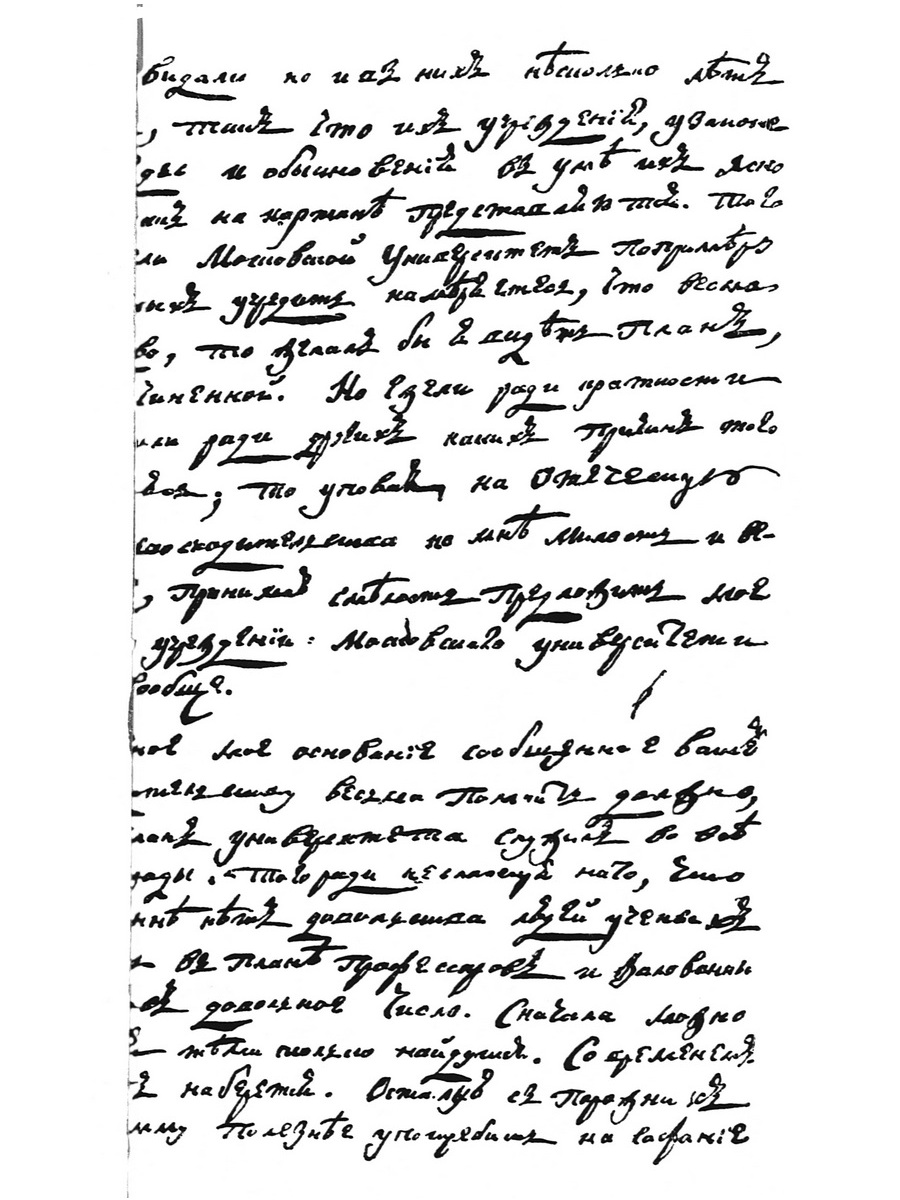 видали но и въ нихъ нѣсколько лѣтъ
, такъ что ихъ учрежденія, узаконе
ды и обыкновенія въ умѣ ихъ ясно
какъ на картинѣ представляются. Того
ли Московской Университетъ по примѣру
ныхъ учредить намѣряетесь, что весьма
во, то желалъ бы я видѣть Планъ,
чиненной. Но ежели ради краткости
или ради другихъ какихъ причинъ того
юсь, то уповая на Отеческую
восходительства ко мнѣ милость и ве-
, принимаю смѣлость предложить мое
учрежденіи Московского университета
вообще.
ное мое основаніе сообщенное вашему
тельству весьма помнить должно,
ланъ университета служилъ во всѣ
роды. Того ради несмотря на то, что
нынѣ нѣтъ довольства людей ученыхъ
въ планѣ Профессоровъ и жалованны
овъ довольное число. Сначала можно
тѣми сколько найдутся. Со временемъ
ъ наберется. Остальную съ порожнихъ
мму полезнѣе употребить на собраніе